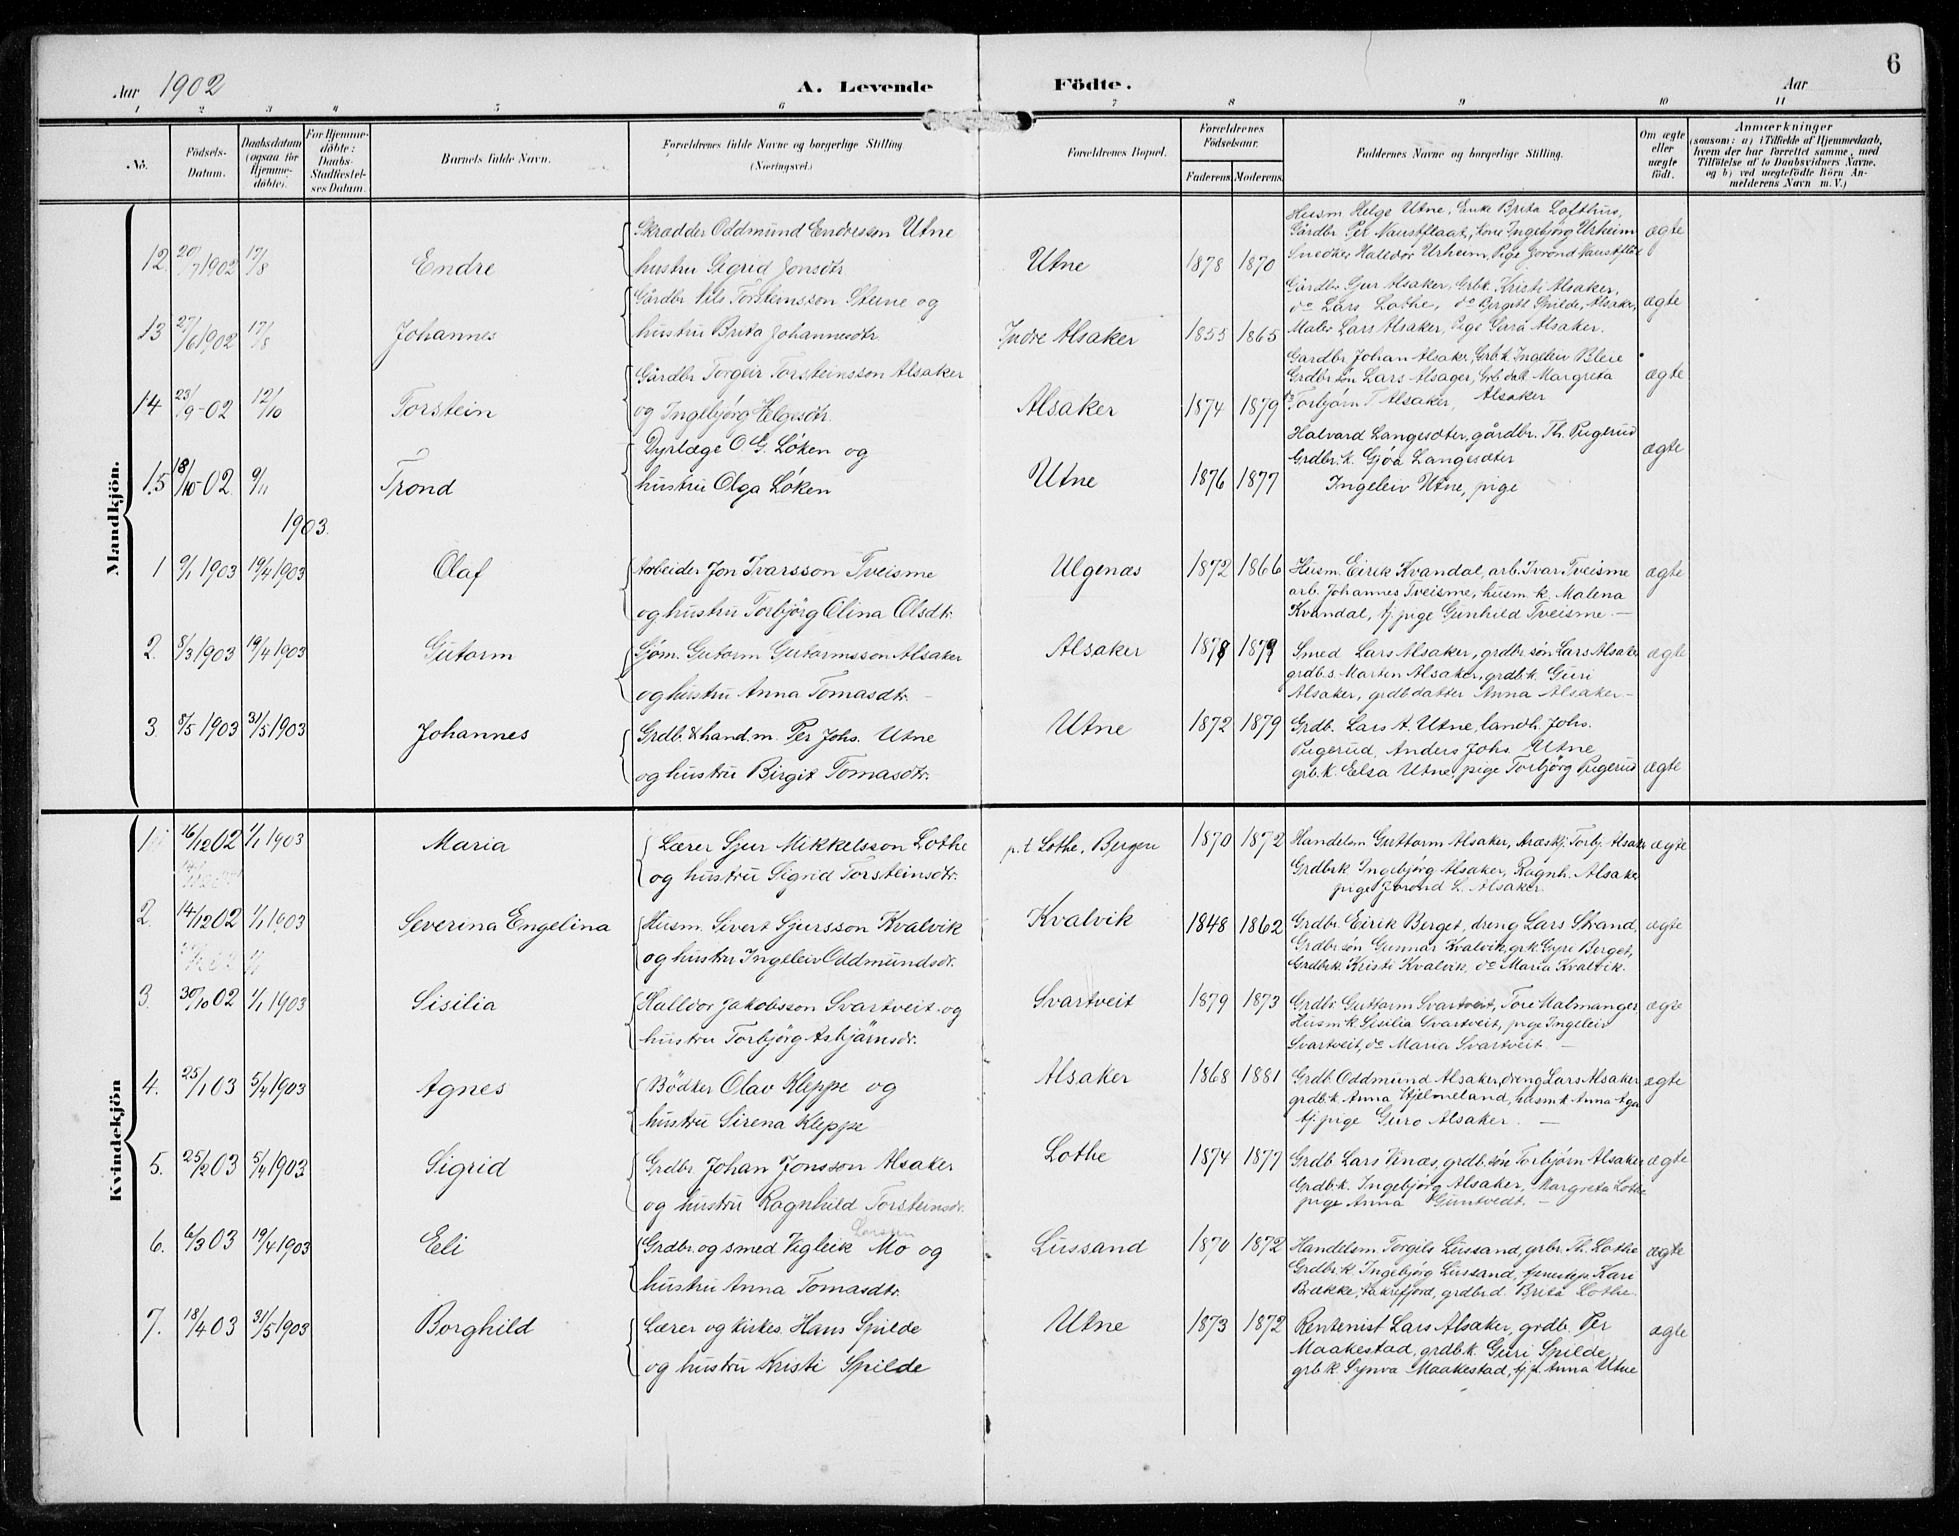 6
Aar 1902 A. Levende Födte. Aar
1 2 3 4 5 6 7 8 9 10 11
No. Födsels-Datum. Daabsdatum (ogsaa for Hjemmedöbte). For Hjemmedöbte: Daabs-Stadfæstelses Datum. Barnets fulde Navn. Forældrenes fulde Navne og borgerlige Stilling (Næringsvei.) Forældrenes Bopæl. Forældrenes Födselsaar. Faderens Moderens Faddernes Navne og borgerlige Stilling. Om ægte eller uægte födt. Anmærkninger (saasom: a) i Tilfælde af Hjemmedaab, hvem der har forrettet samme, med Tilföielse af to Daabsvidners Navne, og b) ved uægtefödte Börn Anmelderens Navn m. V.)
Mandkjön.
12 20/7 1902 17/8 Endre Skrædder Oddmund Endresson Utne
hustru Sigrid Jonsdtr Utne 1878 1870 Husm Helge Utne, Enke Brita Lofthus,
Gårdbr Per Naustflaat, kone Ingebjørg Urheim
Snedker Haldor Urheim, Pige Jorond Naustflåt ægte
13 27/6 1902 17/8 Johannes Gårdbr Nils Torsteinsson Steine og
hustru Brita Johannesdtr Indre Alsaker 1855 1865 Gårdbr Gur Alsaker, Grbk. Kristi Alsaker,
do Lars Lothe, do Bergitl Spilde, Alsaker,
Maler Lars Alsaker, Pige Gura Alsaker. ægte
14 23/9-02 12/10 Torstein Gårdbr Torgeir Torsteinsson Alsaker
og Ingebjørg Helgesdtr. Alsaker 1874 1879 Gardbr. Johan Alsaker, Grb.k. Ingeleiv Bleie
Grdbr søn Lars Alsager, Grb datt Margreta
Torbjørn T Alsaker, Alsaker ægte
15 18/10-02 9/11 Trond Dyrlæge O. G. Løken og
hustru Olga Løken Utne 1876 1877 Halvard Langesæter, gårdbr. Th. Pugerud
Grdbr.k. Gjøa Langesæter
Ingeleiv Utne, pige ægte
1903.
1 9/1 1903 19/4 1903 Olaf Arbeider Jon Ivarsson Tveisme
og hustru Torbjørg Olina Olsdtr. Ulgenæs 1872 1866 Husm. Eirik Kvandal, arb. Ivar Tveisme
arb. Johannes Tveisme, husm. k. Malena
Kvandal, tj. pige Gunhild Tveisme. — ægte
2. 8/3 1903 19/4 1903 Gutorm Sjøm. Gutorm Gutormsson Alsaker
og hustru Anna Tomasdtr. — Alsaker 1878 1879 Smed Lars Alsaker, grdbr søn Lars Alsaker
grdb.s Marten Alsaker, grdb.k. Guri
Alsaker, grdb datter Anna Alsaker. — ægte
3. 8/5 1903 31/5 1903 Johannes Grdb. & hand.m. Per Johs. Utne
og hustru Birgit Tomasdtr. Utne 1872 1879 Grdb. Lars A. Utne, landh. Johs.
Pugerud, Anders Johs. Utne
grb.k. Eelsa Utne, pige Torbjørg Pugerud ægte
Kvindekjön
1 16/12 02 1/1 1903 Maria Lærer Sjur Mikkelsson Lothe
og hustru Sigrid Torsteinsdtr. p.t Lothe, Bergen 1870 1872 Handelsm Guttorm Alsaker, Aræskj. Torbj. Alsaker
Grdbrk Ingebjørg Alsaker, Ragnh. Alsaker
pige Jorond L. Alsaker. ægte
2. 14/12 02 1/1 1903 Severina Engelina Husm. Sivert Sjursson Kvalvik
og hustru Ingeleiv Oddmundsdr. Kvalvik 1848 1862 Grdbr. Eirik Berget, dreng Lars Strand,
Grdbr søn Gunnar Kvalvik, grk Gyri Berget,
Grdbrk. Kristi Kvalvik, do Maria Kvalvik. ægte
3. 30/10 02 1/1 1903 Sisilia Halldor Jakobsson Svartveit og
hustru Torbjørg Asbjørnsdr. Svartveit 1879 1873 Grdbr Guttorm Svartveit, Tore Malmanger
Husmk. Sisilia Svartveit, pige Ingeleiv
Svartveit, do Maria Svartveit. — ægte
4. 25/1 03 5/4 1903 Agnes Bødker Olav Kleppe og
hustru Sirena Kleppe Alsaker 1868 1881 Grdb. Oddmund Alsaker, dreng Lars Alsaker
grdb.k. Anna Hjelmeland, husmk Anna Aga
tj. pige Guro Alsaker. — ægte
5. 25/2 03 5/4 1903 Sigrid Grdbr. Johan Jonsson Alsaker
og hustru Ragnhild Torsteinsdr. Lothe 1874 1877 Grdb. Lars Vinæs, grdb. søn Torbjørn Alsaker
Grdb.k. Ingebjørg Alsaker, Margreta Lothe
pige Anna Guntvedt. — ægte
6. 6/3 03 19/4 1903 Eli Grdbr. og smed Vigleik Larsen Mo og
hustru Anna Tomasdtr. Lussand 1870 1872 Handelsm Torgils Lussand, grbr. Th. Lothe
Grdbr.k. Ingebjørg Lussand, tjenestep. Kari
Bække, Aakrefjord, grdbr.d. Brita Lothe. ægte
7. 18/4 03 31/5 1903 Borghild Lærer og kirkes. Hans Spilde
og hustru Kristi Spilde Utne 1873 1872 Rentenist Lars Alsaker, grdb. Per
Maakestad, grdb.k. Guri Spilde,
grb.k. Synva Maakestad, tj.p. Anna Utne ægte